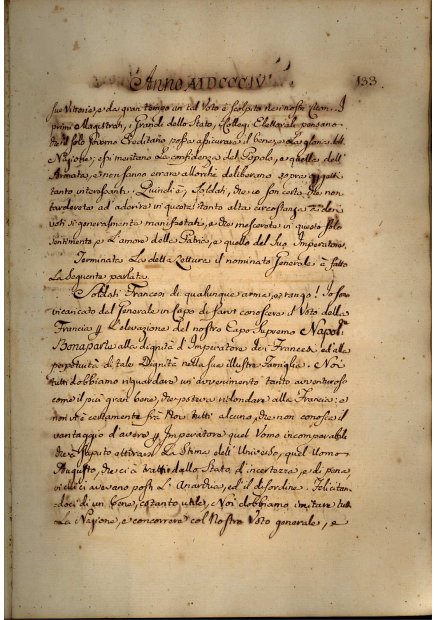 Anno MDCCCIV
133
sue Vittorie, e da gran tempo un tal Voto è scolpito ne i nostri Cuori. I
primi Magistrati, Grandi dello Stato, Collegi Elettorali pensano
che il solo Governo Ereditario possa assicurare il bene, e la gloria della
Nazione; essi meritano la confidenza del Popolo, e quella dell'
Armata, e non sanno errare allorchè deliberano sopra
tanto interessanti. Quindi è, Soldati, che io son certo che non
tarderete ad aderire in questa tanto alta circostanza
voti sì generalmente manifestati, e che mescerete in questo solo
sentimento L'amore della Patria, e quello del suo Imperatore.
Terminata la detta Lettura il nominato Generale è fatto
La seguente parlata.
Soldati Francesi di qualunque arma, e rango! Io sono
incaricato dal Generale in Capo di farvi conoscere il Voto della
Francia L'elevazione del nostro Capo supremo Napol.
Bonaparte alla dignità d'Imperatore dei Francesi, ed alla
perpetuità di tale Dignità nella sua illustre Famiglia. Noi
tutti dobbiamo riguardare un avvenimento tanto avventuroso
come il più gran bene, che poteva ridondare alla Francia; e
non v'è certamente frà Noi tutti alcuno, che non conosca il
vantaggio d'avere Imperatore quel Uomo incomparabile
che à saputo attirarsi La Stima dell'Universo, quel Uomo
Augusto, che ci à tratti dallo Stato d'incertezza, e di pena
in cui ci avevano posti L'Anarchia, ed il disordine. Felicitan_
doci di un bene, cotanto utile, Noi dobbiamo imitare tutta
La Nazione, e concorrere col Nostro Voto generale, e